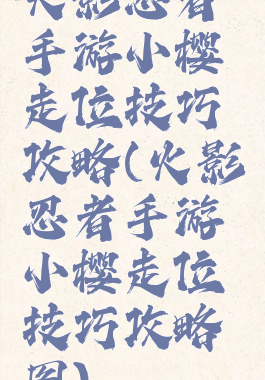 火影忍者
手游小樱
走位技巧
攻略(火影
忍者手游
小樱走位
技巧攻略
图)